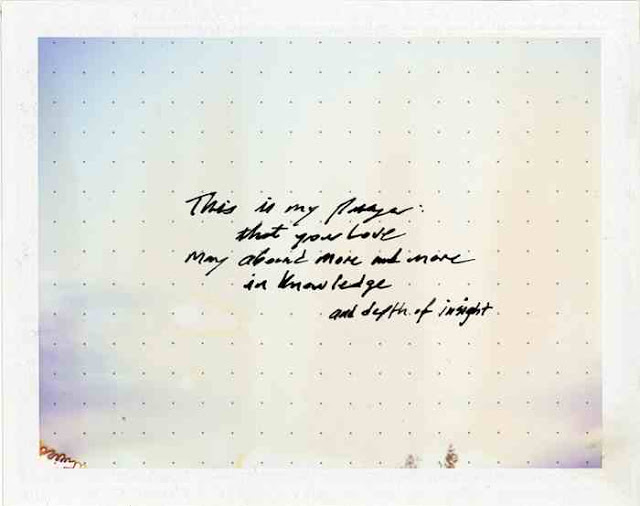 This is my prayer:
that your love
May abound more and more
in knowledge
and depth of insight